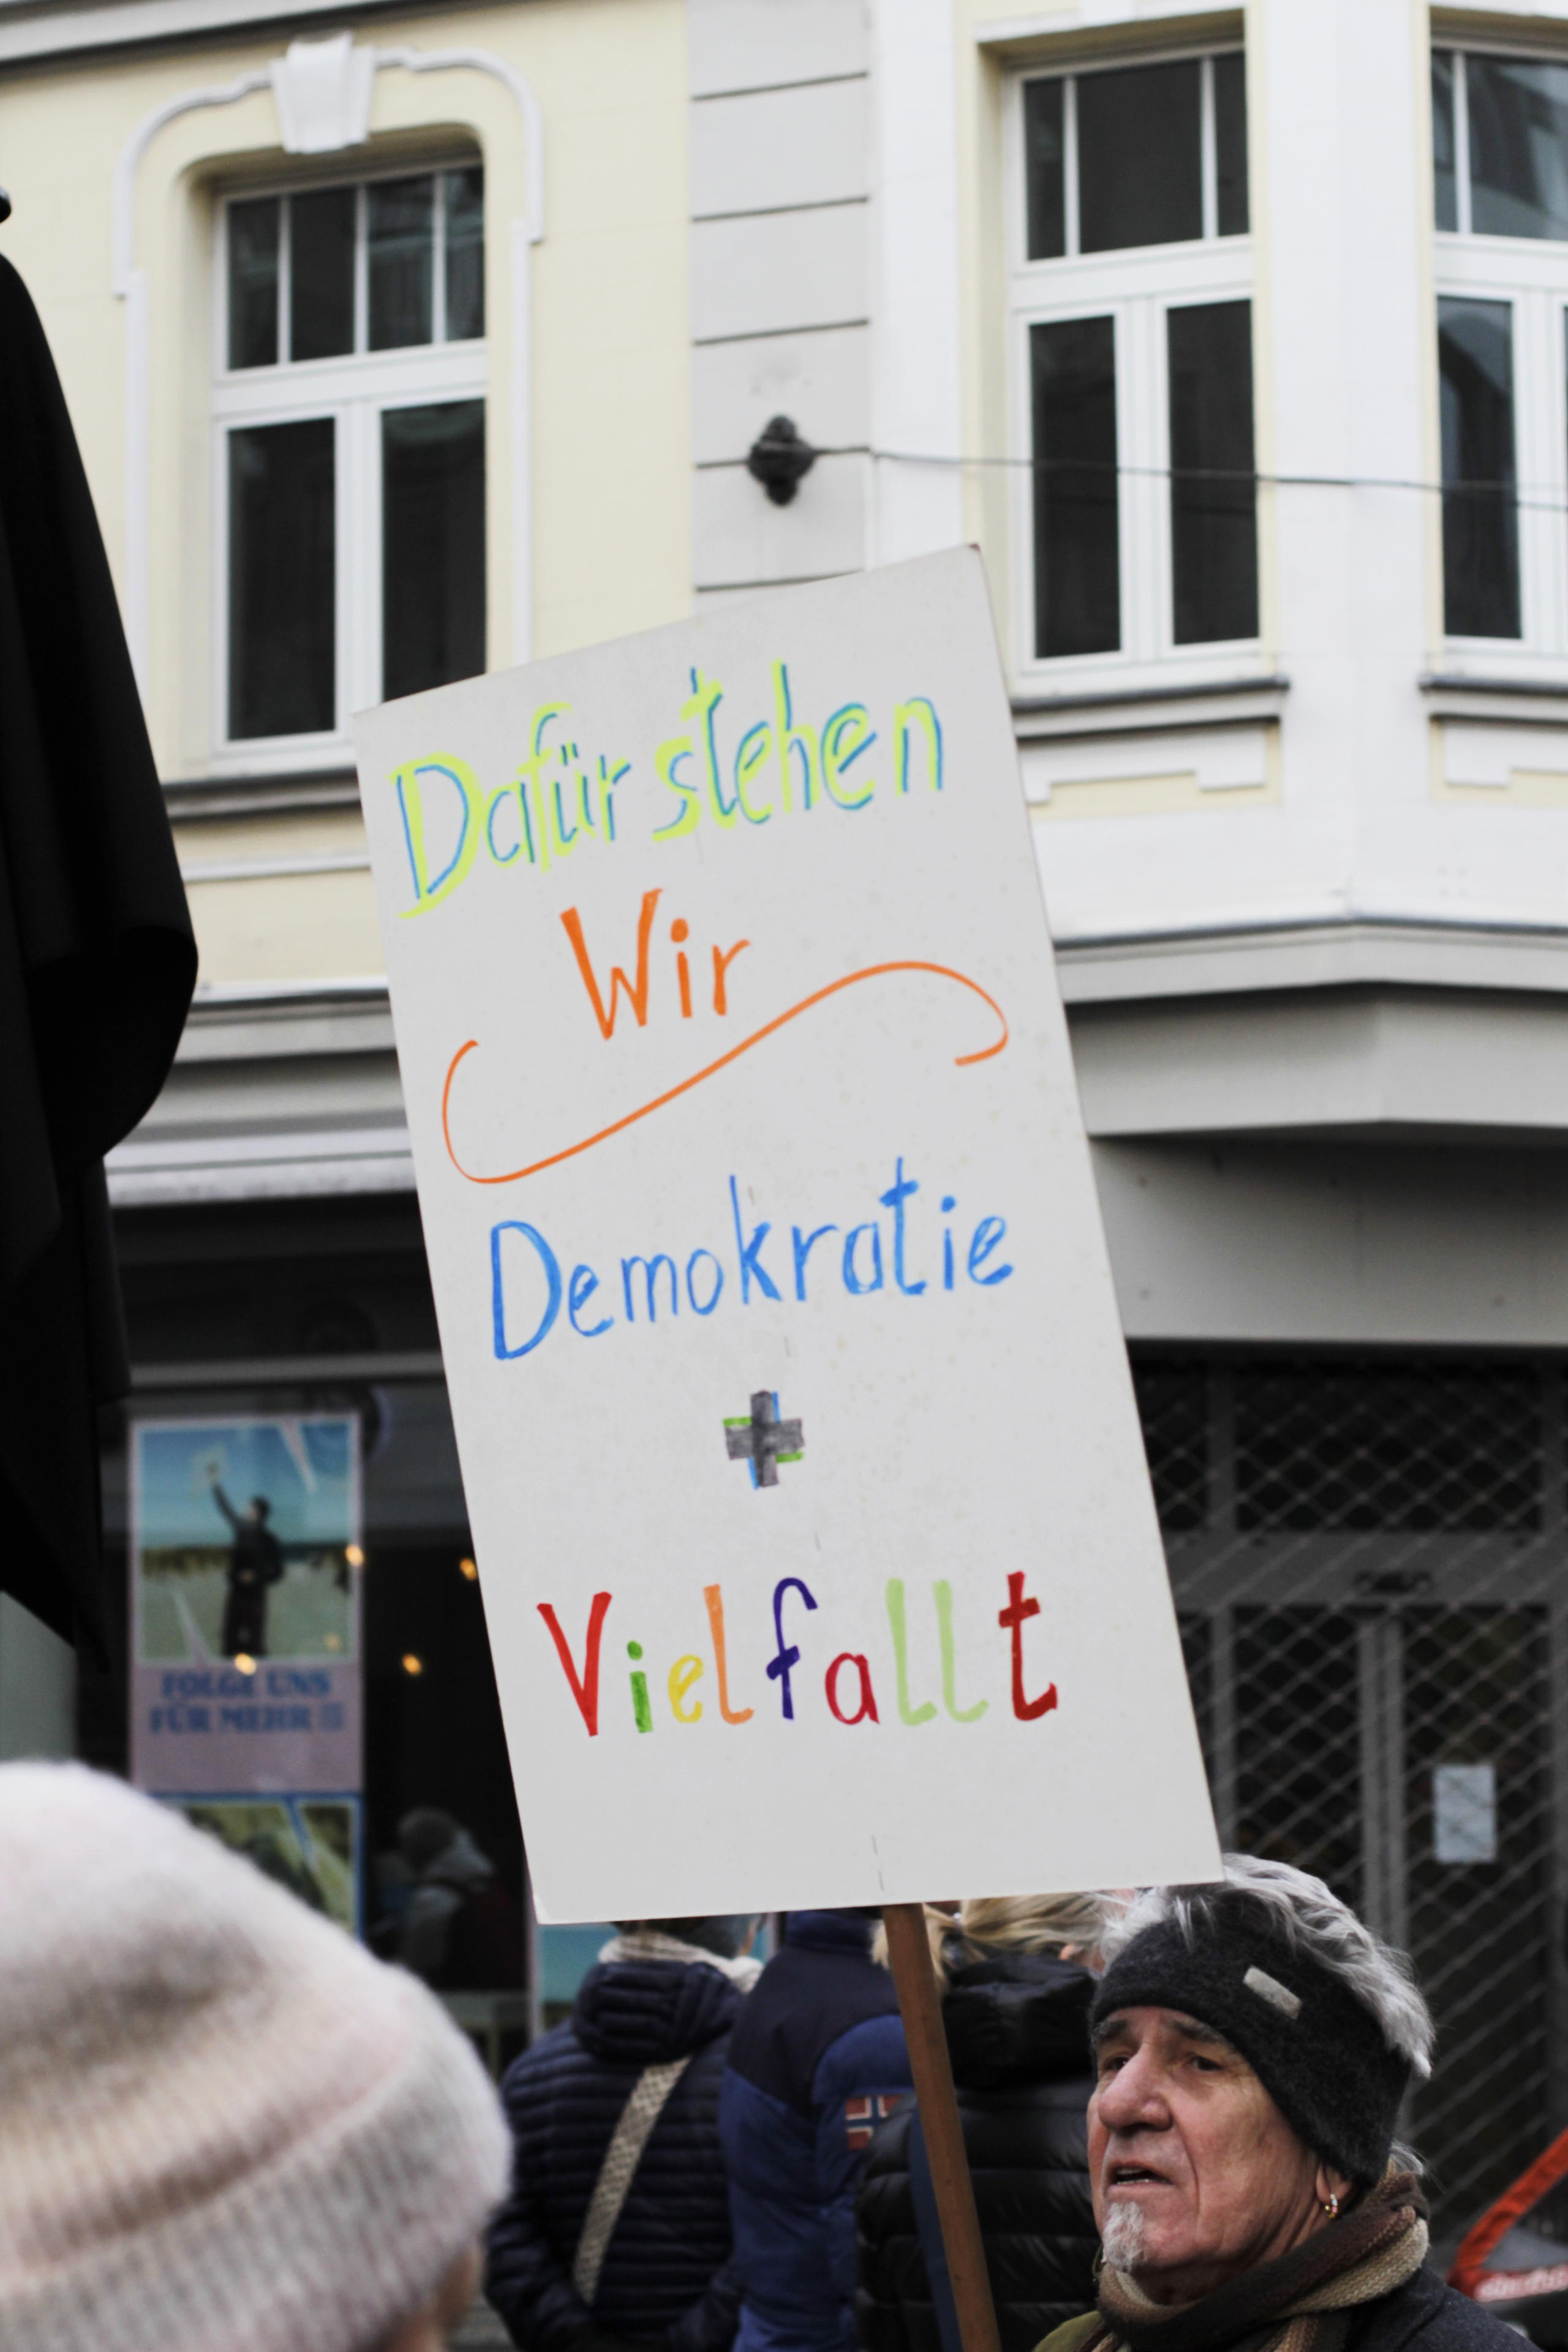 Dafür stehen
Wir
Demokratie
+
Vielfallt
FOLGE UNS
FÜR MEHR